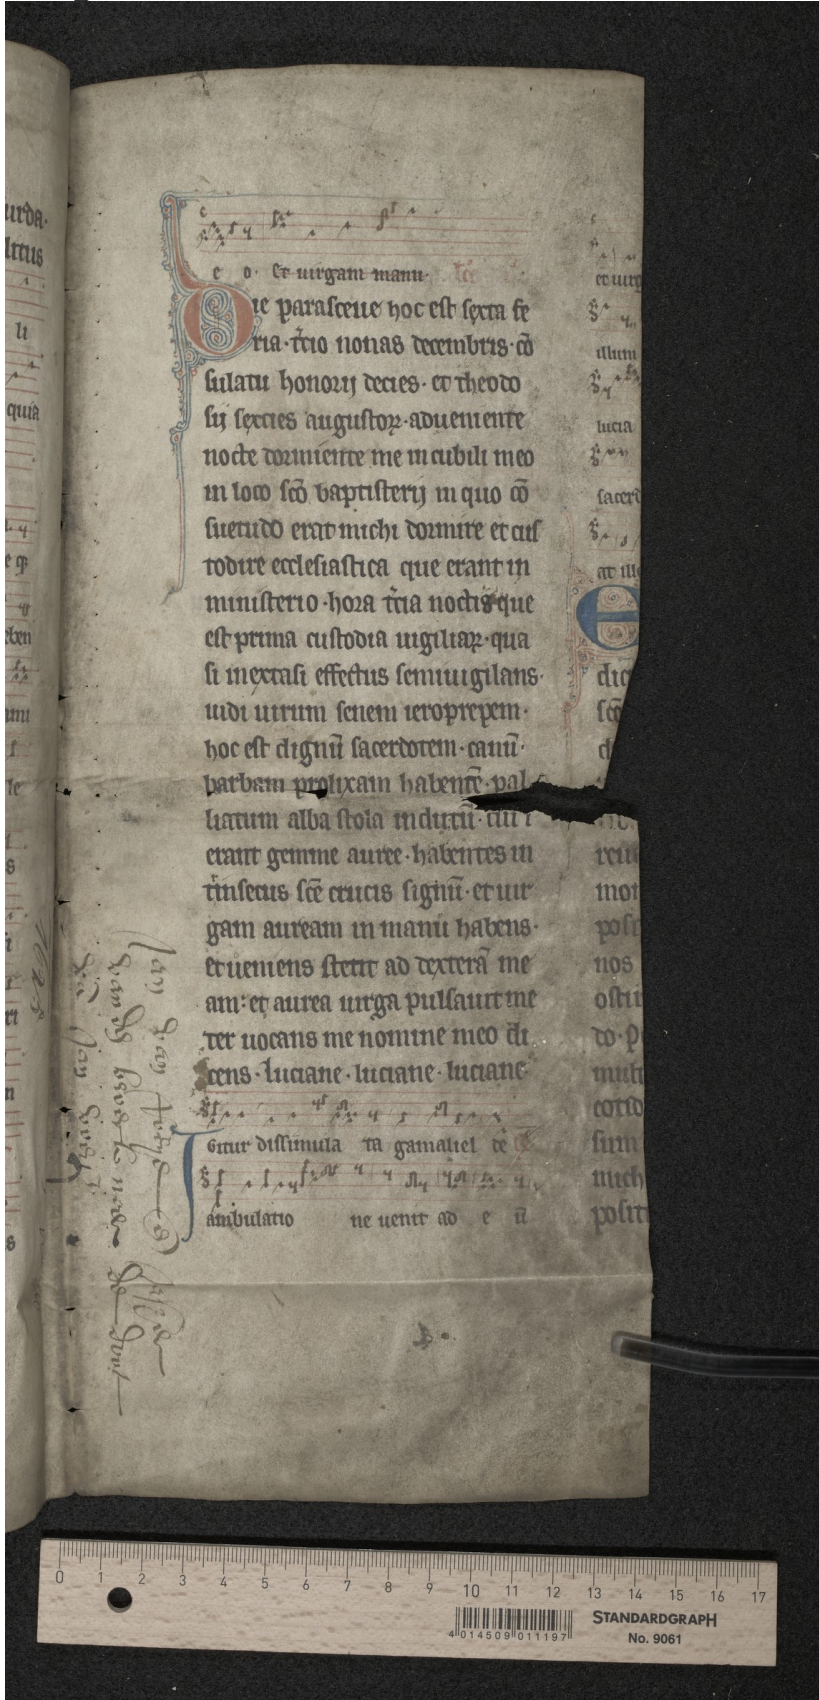 urda.
ltus
li
quia
e qꝫ
eben
le
s
ri
n
s
e o. Et uirgam manu. lc̄o
Die parasceue hoc est sexta fe
ria. t̄cio nonas decembris. cō
sulatu honorij decies. et theodo
sij sexcies augustoꝝ. adueniente
nocte dormiente me in cubili meo
in loco sc̄o baptisterij in quo cō
suetudo erat michi dormire et cus
todire ecclesiastica que erant in
ministerio. hora t̄cia noctis que
est prima custodia uigiliaꝝ. qua
si in extasi effectus semiuigilans.
uidi uirum senem ieroprepem.
hoc est dignū sacerdotem. canū.
barbam prolixam habentē. pal
liatum alba stola indutū. cui i
erant gemme auree. habentes in
t̄nsecus sc̄e crucis signū. et uir
gam auream in manu habens.
et ueniens stetit ad dexterā me
am. et aurea uirga pulsauit me
ter uocans me nomine meo di
cens. luciane. luciane. luciane
Igitur dissimula ta gamaliel de
ambulatio ne uenit ad e ū
et uirg
illum
lucia
sacerd
at ille
E
dic
sc̄o
reue
mon
posi
nos
osti
do. p
mult
cotid
sum
mich
posit
Jan van
van
van Jan
1625
0 1 2 3 4 5 6 7 8 9 10 11 12 13 14 15 16 17
4 014509 011197
STANDARDGRAPH
No. 9061